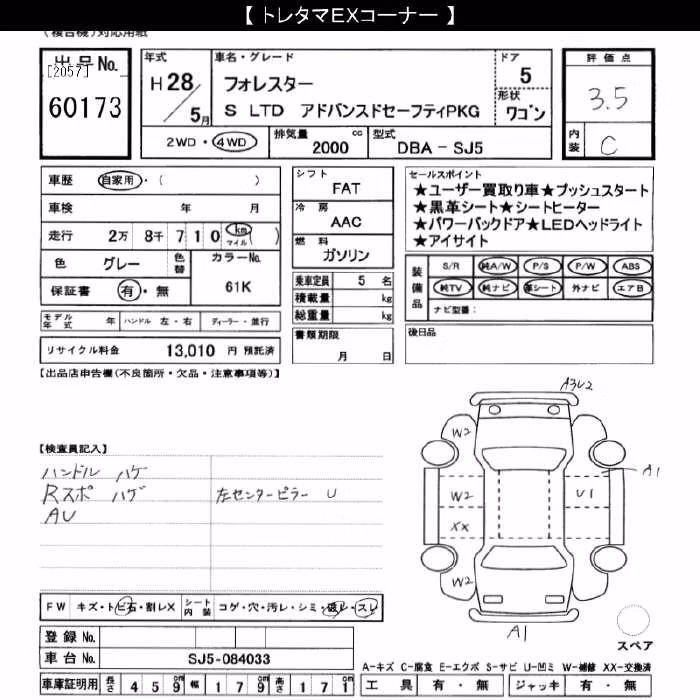 【 トレタマEXコーナー 】
(複合機)対応用紙
出品No.
[2057]
60173
年式
H28/5月
車名・グレード
フォレスター
S LTD アドバンスドセーフティPKG
ドア
5
形状
ワゴン
評価点
3.5
内装
C
2WD・4WD
排気量
2000 cc
型式
DBA - SJ5
車歴 自家用・( )
車検 年 月
走行 2万 8千 7 1 0 km マイル ( )
色 グレー 色替
カラーNo.
61K
保証書 有・無
モデル年式 年 ハンドル 左・右 ディーラー・並行
リサイクル料金 13,010 円 預託済
シフト
FAT
冷房
AAC
燃料
ガソリン
乗車定員 5 名
積載量 kg
総重量 kg
書類期限
月 日
セールスポイント
★ユーザー買取り車★プッシュスタート
★黒革シート★シートヒーター
★パワーバックドア★LEDヘッドライト
★アイサイト
装備品
S/R 純A/W P/S P/W ABS
純TV 純ナビ 革シート 外ナビ エアB
ナビ型番:
後日品
【出品店申告欄(不良箇所・欠品・注意事項等)】
【検査員記入】
ハンドル ハゲ
Rスポ ハゲ
AU
左センターピラー U
A3U2
W2
A1
W2
U1
XX
W2
A1
スペア
FW キズ・トビ石・割レX シート内装 コゲ・穴・汚レ・シミ・破レ・スレ
登録No.
車台No. SJ5-084033
車庫証明用 長さ 4 5 9 cm 幅 1 7 9 cm 高さ 1 7 1 cm
A-キズ C-腐食 E-エクボ S-サビ U-凹ミ W-補修 XX-交換済
工具 有・無 ジャッキ 有・無